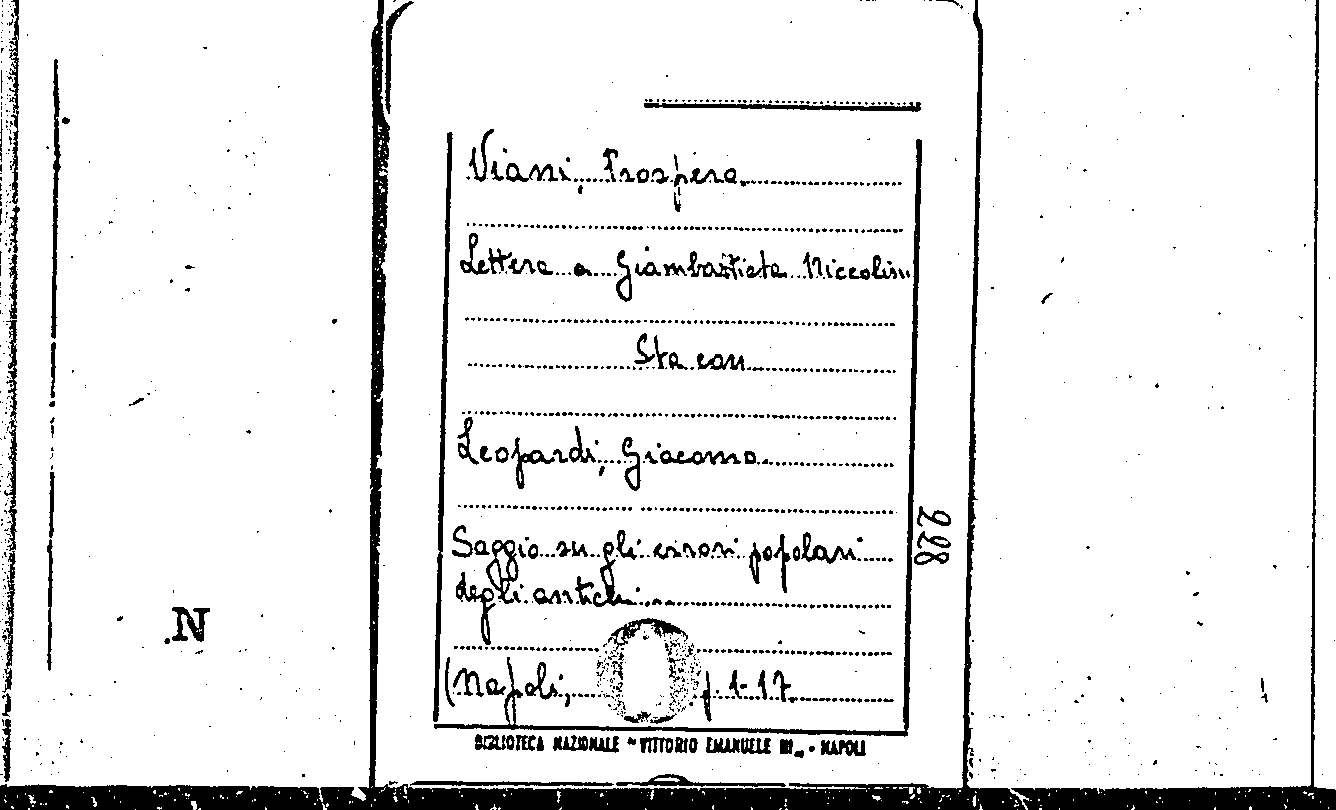 Viani, Prospero
Lettera a Giambattista Niccolini
Sta con
Leopardi, Giacomo.
Saggio su gli errori popolari
degli antichi...
(Napoli, p. 1-17.
228
N.
BIBLIOTECA NAZIONALE "VITTORIO EMANUELE III„ - NAPOLI